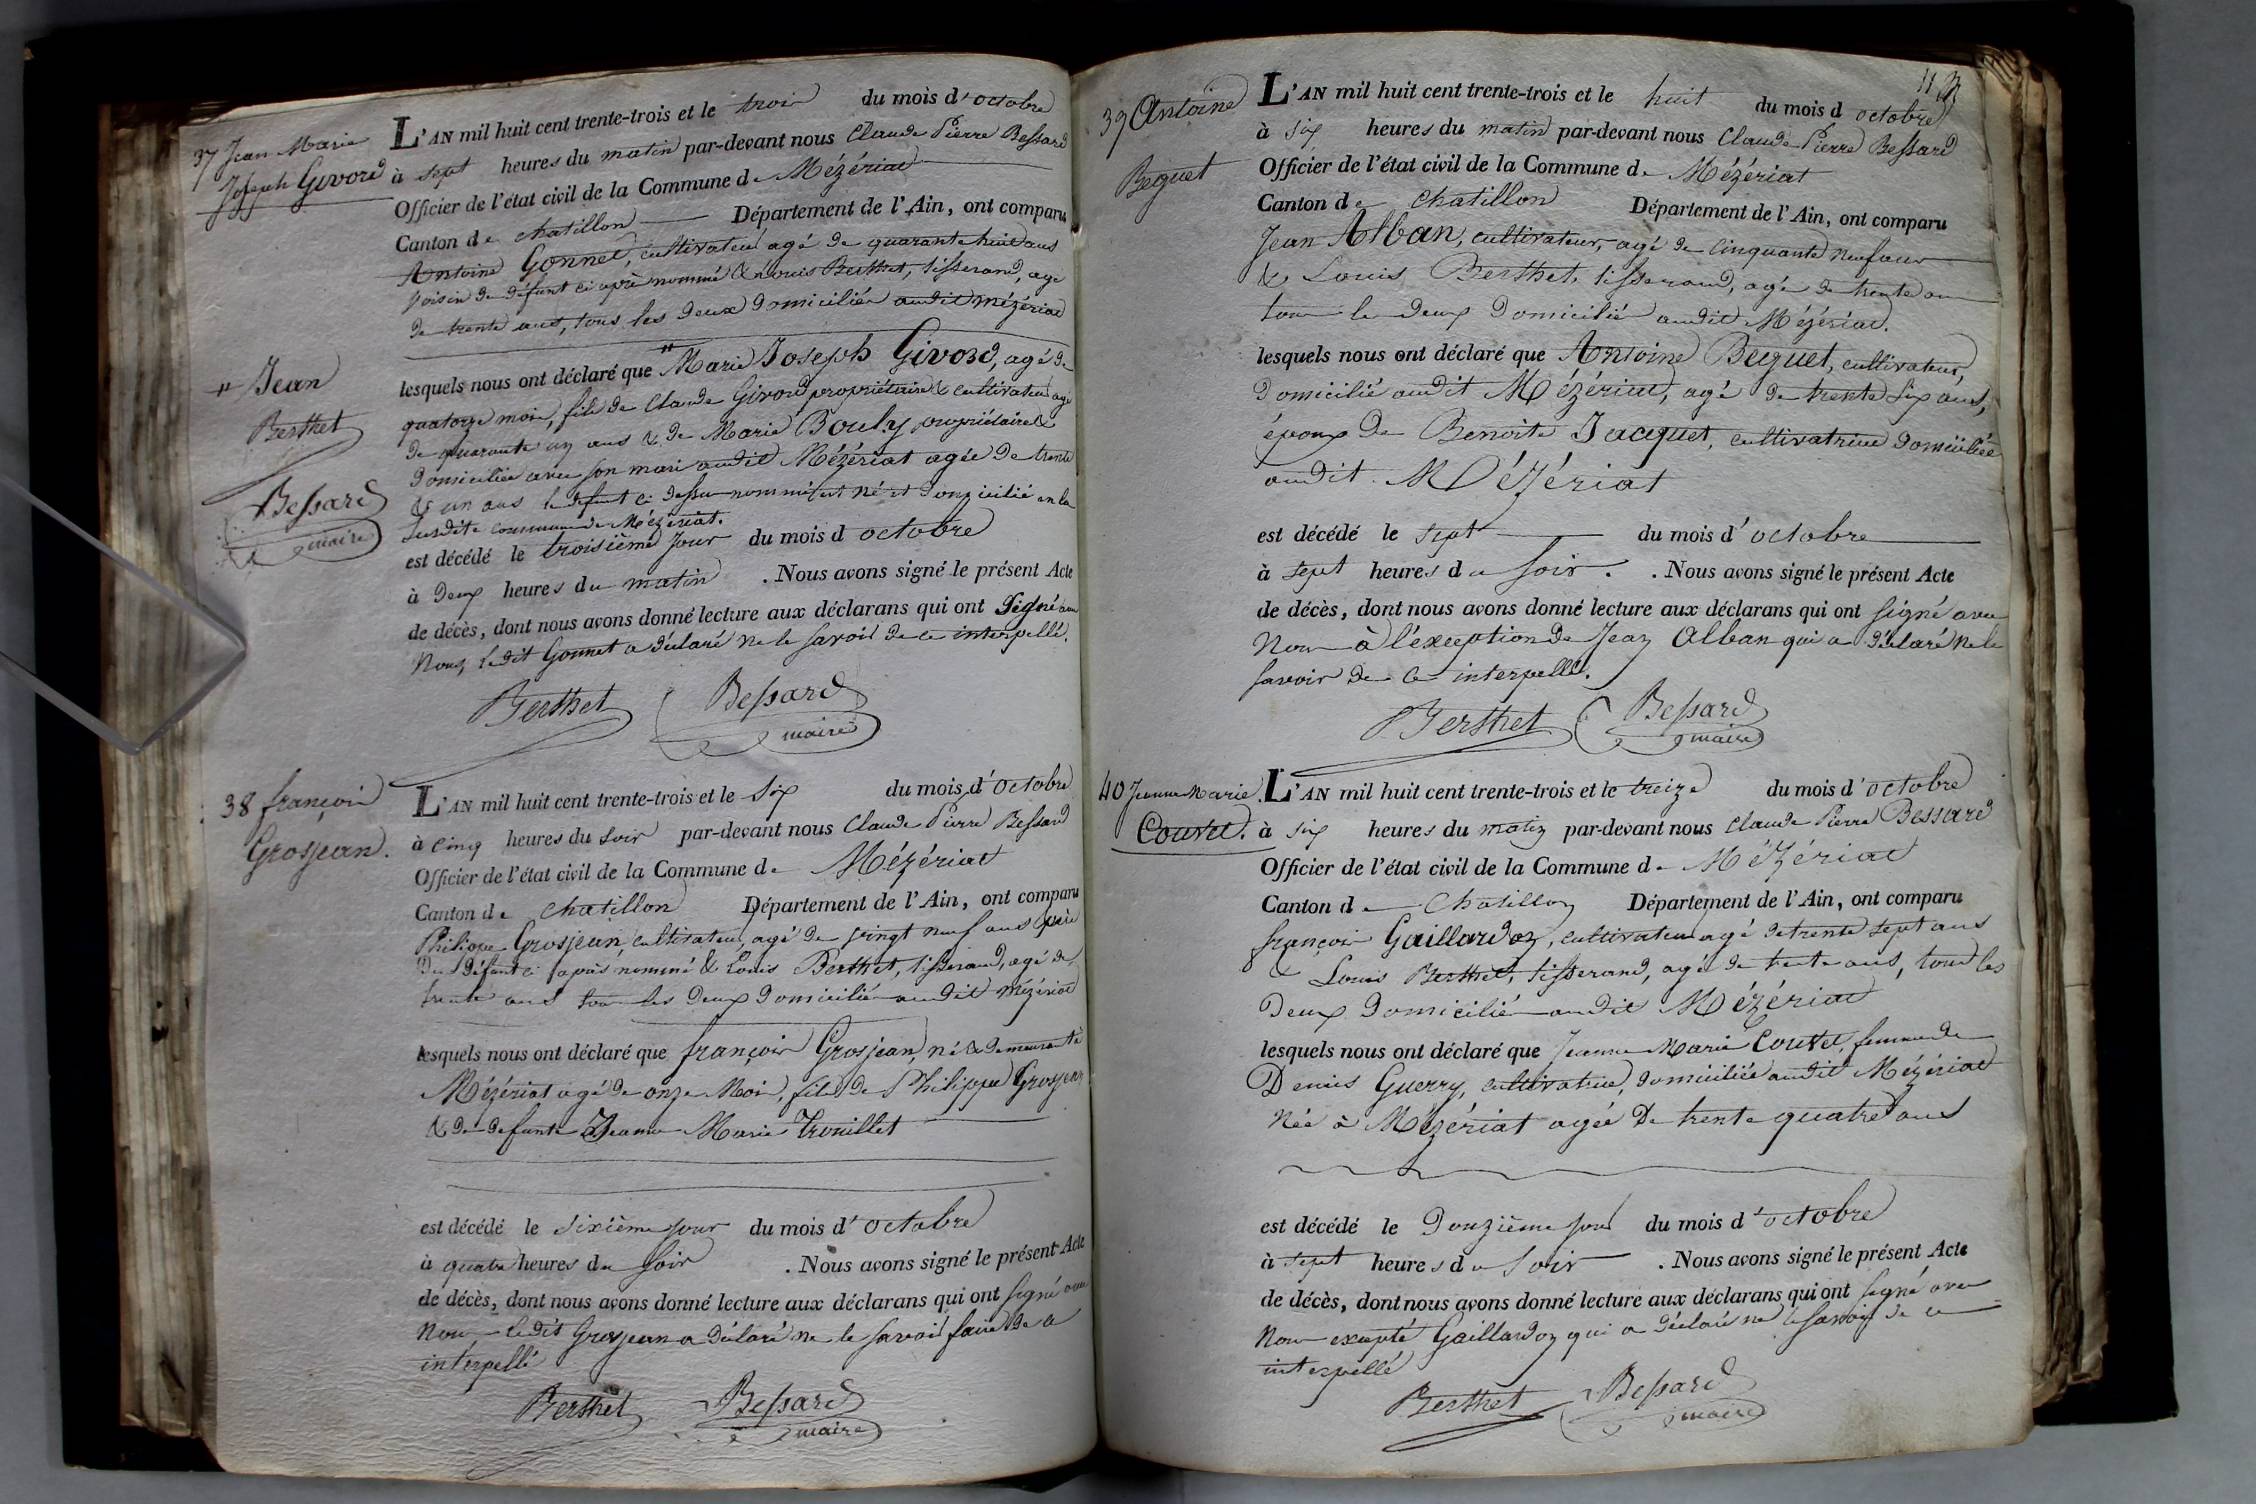 37 Jean Marie
Joseph Givord
L'AN mil huit cent trente-trois et le trois du mois d'octobre
à sept heures du matin par-devant nous Claude Pierre Bessard
Officier de l'état civil de la Commune de Mézériat
Canton de chatillon Département de l'Ain, ont comparu
Antoine Gonnet, cultivateur agé de quarante huit ans
voisin du défunt ci après nommé & Louis Berthet, tisserand, agé
de trente ans, tous les deux domiciliés audit Mézériat
lesquels nous ont déclaré que " Marie Joseph Givord, agé de
quatorze mois, fils de Claude Givord propriétaire & cultivateur agé
de quarante un ans & de Marie Bouly propriétaire &
domiciliée avec son mari audit Mézériat agée de trente
& un ans le défunt ci dessus nommé est né et domicilié en la
susdite commune de Mézériat.
est décédé le troisième jour du mois d octobre
à deux heures du matin . Nous avons signé le présent Acte
de décès, dont nous avons donné lecture aux déclarans qui ont signé avec
Nous, ledit Gonnet a déclaré ne le savoir de ce interpellé.
Berthet Bessard
maire
" Jean
Berthet
Bessard
maire
38 françois
Grosjean.
L'AN mil huit cent trente-trois et le six du mois d'octobre
à cinq heures du soir par-devant nous Claude Pierre Bessard
Officier de l'état civil de la Commune de Mézériat
Canton de chatillon Département de l'Ain, ont comparu
Philippe Grosjean, cultivateur, agé de vingt neuf ans père
du défunt ci après nommé & Louis Berthet, tisserand, agé de
trente ans tous les deux domiciliés audit Mézériat
lesquels nous ont déclaré que françois Grosjean, né & demeurant à
Mézériat agé de onze Mois, fils de Philippe Grosjean
& de defunte Jeanne Marie Trouillet
est décédé le sixième jour du mois d'octobre
à quatre heures du soir . Nous avons signé le présent Acte
de décès, dont nous avons donné lecture aux déclarans qui ont signé avec
Nous ledit Grosjean a déclaré ne le savoir faire de ce
interpellé
Berthet Bessard
maire
113
39 Antoine
Beguet
L'AN mil huit cent trente-trois et le huit du mois d octobre
à six heures du matin par-devant nous Claude Pierre Bessard
Officier de l'état civil de la Commune de Mézériat
Canton de Chatillon Département de l'Ain, ont comparu
Jean Alban, cultivateur, agé de cinquante neuf ans
& Louis Berthet, tisserand, agé de trente ans
tous les deux domiciliés audit Mézériat.
lesquels nous ont déclaré que Antoine Beguet, cultivateur,
domicilié audit Mézériat, agé de trente six ans,
époux de Benoite Jacquet, cultivatrice domiciliée
audit Mézériat
est décédé le sept du mois d'octobre
à sept heures du soir . . Nous avons signé le présent Acte
de décès, dont nous avons donné lecture aux déclarans qui ont signé avec
Nous à l'exception de Jean Alban qui a déclaré ne le
savoir de ce interpellé.
Berthet Bessard
maire
40 Jeanne Marie
Couvet.
L'AN mil huit cent trente-trois et le treize du mois d'octobre
à six heures du matin par-devant nous Claude Pierre Bessard
Officier de l'état civil de la Commune de Mézériat
Canton de Chatillon Département de l'Ain, ont comparu
françois Gaillardon, cultivateur agé de trente sept ans
& Louis Berthet, tisserand, agé de trente ans, tous les
deux domiciliés audit Mézériat
lesquels nous ont déclaré que Jeanne Marie Couvet, femme de
Denis Guerry, cultivatrice, domiciliée audit Mézériat
Née à Mézériat agée de trente quatre ans
est décédé le Douzième jour du mois d'octobre
à sept heures du soir . Nous avons signé le présent Acte
de décès, dont nous avons donné lecture aux déclarans qui ont signé avec
Nous excepté Gaillardon qui a déclaré ne le savoir de ce
interpellé
Berthet Bessard
maire